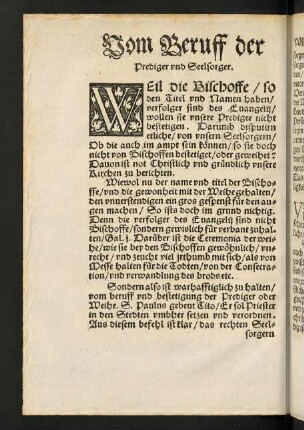 Vom Beruff der
Prediger vnd Seelsorger.
WEil die Bischoffe / so
den Titel vnd Namen haben /
verfolger sind des Euangelij /
wollen sie vnsere Prediger nicht
bestetigen. Darumb disputirn
etliche / von vnsern Seelsorgern /
Ob die auch im ampt sein können / so sie doch
nicht von Bischoffen bestetiget / oder geweihet?
Dauon ist not Christlich vnd gründlich vnsere
Kirchen zu berichten.
Wiewol nu der name vnd titel der Bischo-
ffe / vnd die gewonheit mit der Weihe gehalten /
den vnuerstendigen ein gros gespenst für den au-
gen machen / So ist doch im grund nichtig.
Denn die verfolger des Euangelij sind nicht
Bischoffe / sondern gewislich für verbant zuhal-
ten / Gal. j. Darüber ist die Ceremonia der wei-
he / wie sie bey den Bischoffen gewöhnlich / vn-
recht / vnd zeucht viel jrthumb mit sich / als von
Messe halten für die Todten / von der Consecra-
tion / vnd verwandlung des brods etc.
Sondern also ist warhafftiglich zu halten /
vom beruff vnd bestetigung der Prediger oder
Weihe. S. Paulus gebeut Tito / Er sol Priester
in den Stedten vmbher setzen vnd verordnen.
Aus diesem befehl ist klar / das rechten Seel-
sorgern